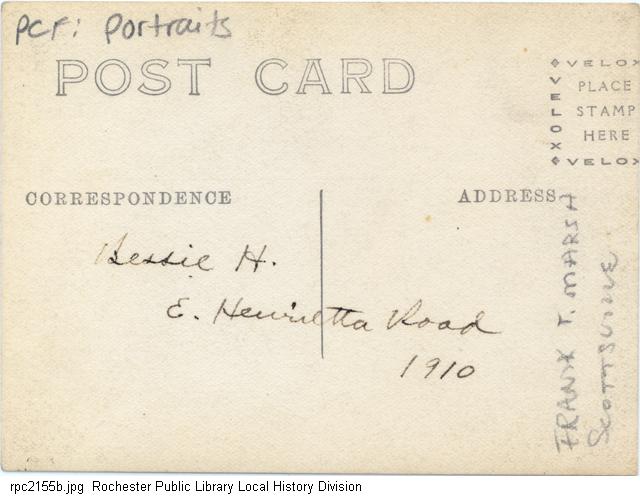 PCF: Portraits
POST CARD
VELOX
VELOX
PLACE
STAMP
HERE
VELOX
CORRESPONDENCE
ADDRESS
Bessie H.
E. Henrietta Road
1910
FRANK T. MARSH
SCOTTSVILLE
rpc2155b.jpg Rochester Public Library Local History Division